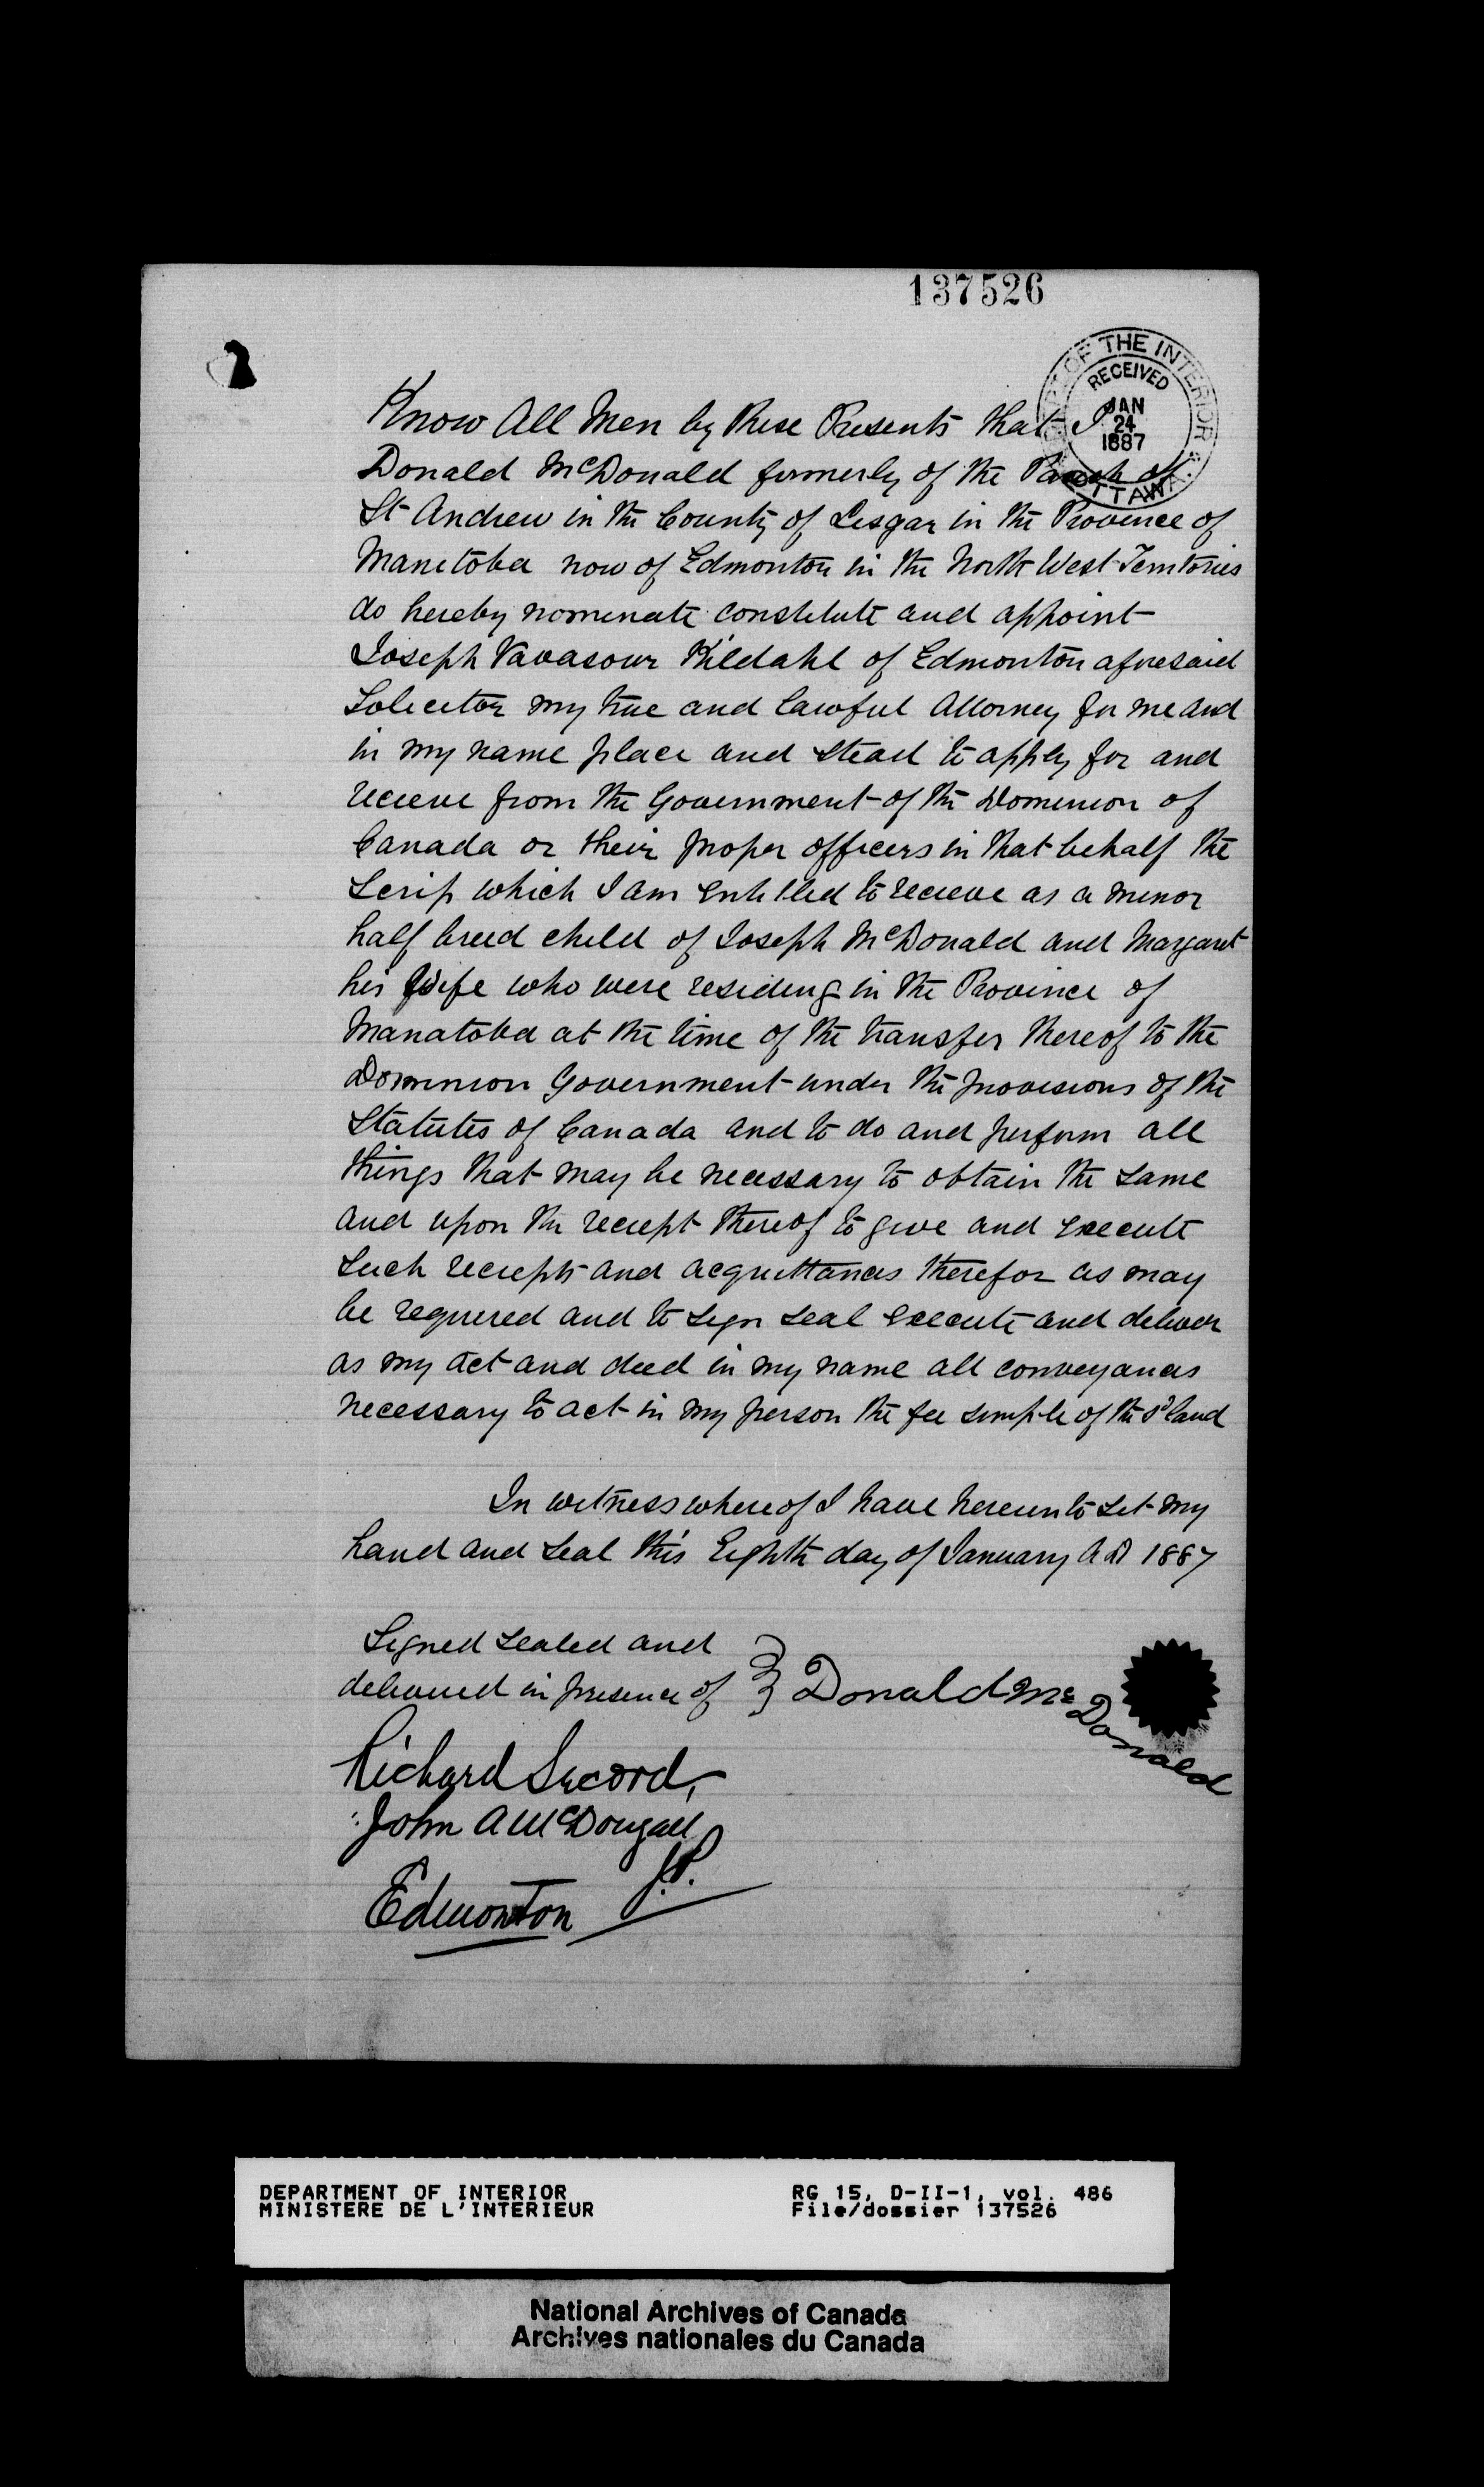 137526
DEPT OF THE INTERIOR
RECEIVED
JAN
24
1887
OTTAWA
Know All Men by these Presents that I
Donald McDonald formerly of the Parish of
St Andrew in the County of Lisgar in the Province of
Manitoba now of Edmonton in the North West Territories
do hereby nominate constitute and appoint
Joseph Vavasour Kildahl of Edmonton aforesaid
Solicitor my true and lawful Attorney for me and
in my name place and stead to apply for and
recieve from the Government of the Dominion of
Canada or their proper officers in that behalf the
Scrip which I am entitled to recieve as a minor
half breed child of Joseph McDonald and Margaret
his Wife who were residing in the Province of
Manatoba at the time of the transfer thereof to the
Dominion Government under the provisions of the
Statutes of Canada and to do and perform all
things that may be necessary to obtain the same
and upon the reciept thereof to give and execute
such reciepts and acquittances therefor as may
be required and to sign seal execute and deliver
as my act and deed in my name all conveyances
necessary to act in my person the fee simple of the sd land
In witness whereof I have hereunto set my
hand and seal this Eighth day of January A D 1887
Signed sealed and
delivered in presence of } Donald McDonald
Richard Secord,
John A McDougall
J.P.
Edmonton
DEPARTMENT OF INTERIOR RG 15, D-II-1, vol. 486
MINISTERE DE L'INTERIEUR File/dossier 137526
National Archives of Canada
Archives nationales du Canada